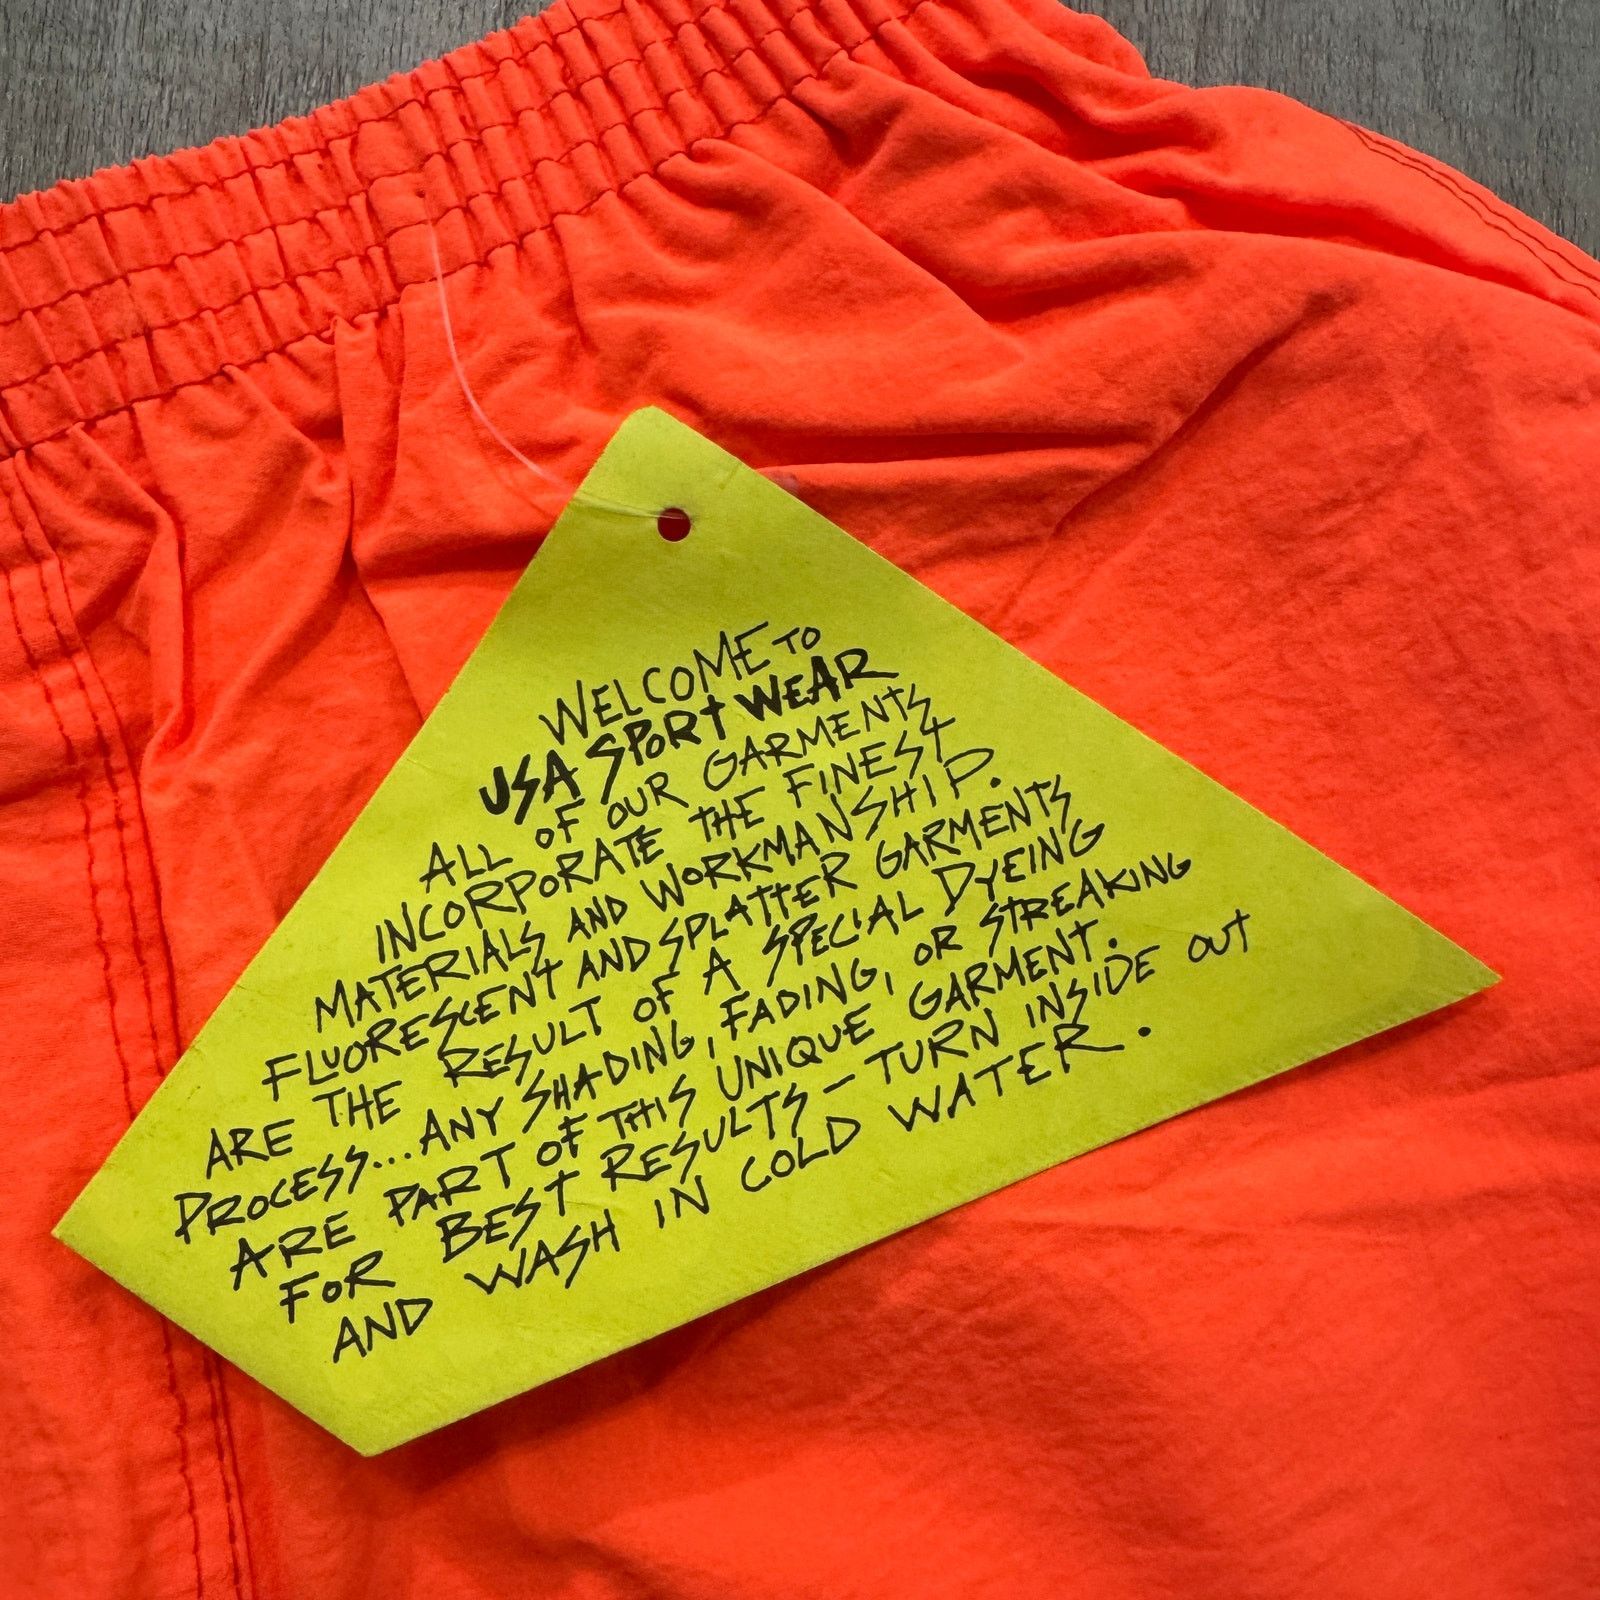 WELCOME TO
USA SPORTWEAR
ALL OF OUR GARMENTS
INCORPORATE THE FINEST
MATERIALS AND WORKMANSHIP.
FLUORESCENT AND SPLATTER GARMENTS
ARE THE RESULT OF A SPECIAL DYEING
PROCESS...ANY SHADING, FADING, OR STREAKING
ARE PART OF THIS UNIQUE GARMENT.
FOR BEST RESULTS - TURN INSIDE OUT
AND WASH IN COLD WATER.